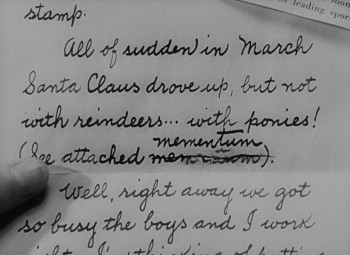 leading spor
stamp.
All of sudden in March
Santa Claus drove up, but not
with reindeers... with ponies!
mementum
(See attached ).
Well, right away we got
so busy the boys and I work
thinking of putting